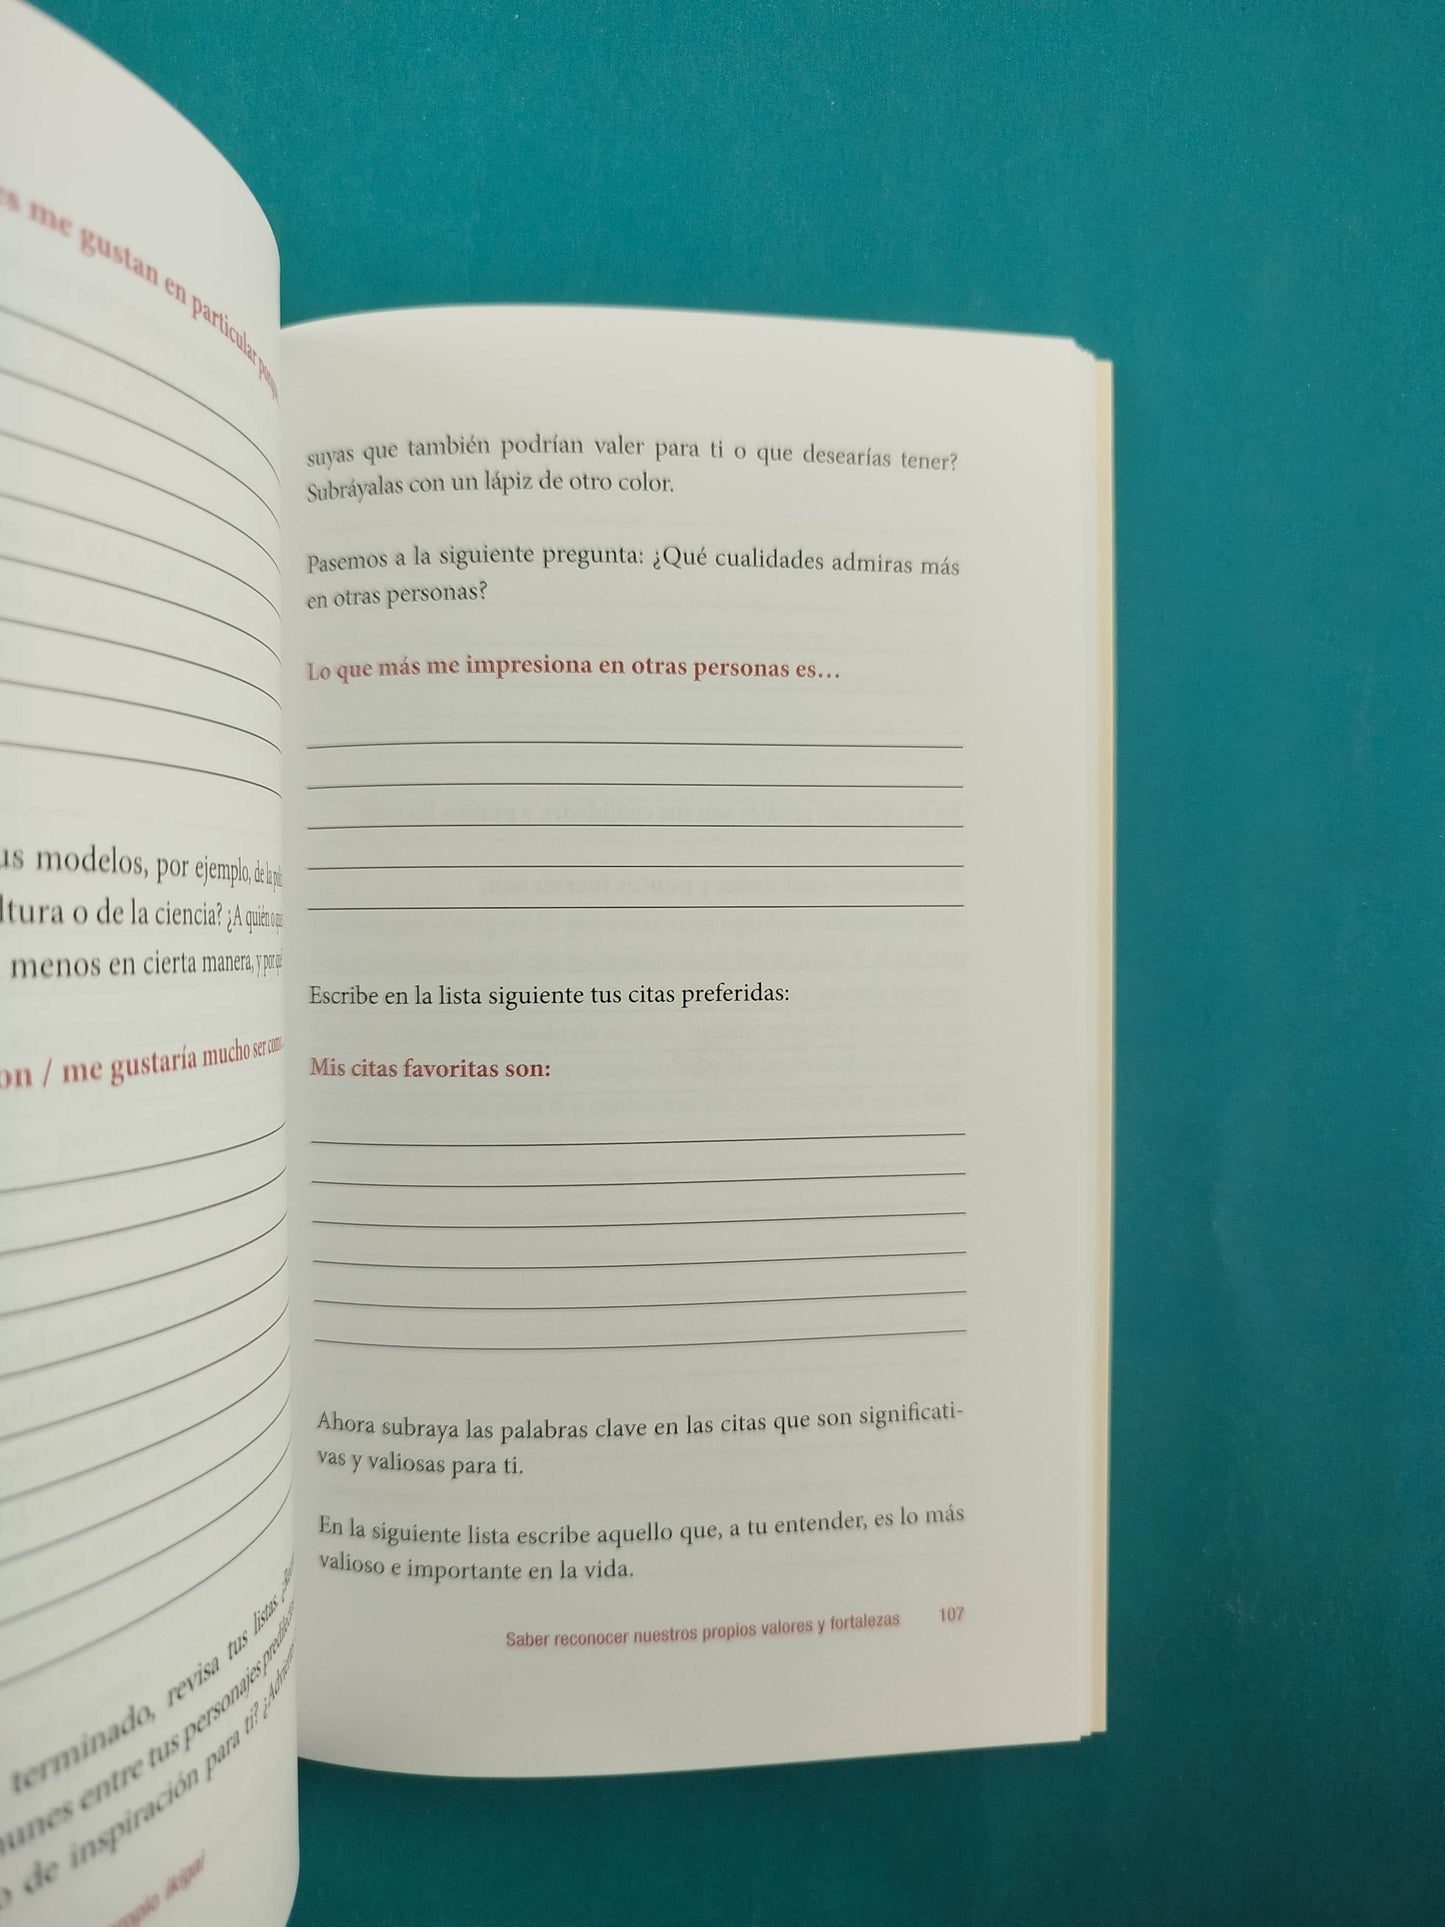 es me gustan en particular
us modelos, por ejemplo, de la
ltura o de la ciencia? ¿A quién o
menos en cierta manera, y por qué
on / me gustaría mucho ser como
terminado, revisa tus listas.
unes entre tus personajes
o de inspiración para ti?
propio ikigai
suyas que también podrían valer para ti o que desearías tener?
Subráyalas con un lápiz de otro color.
Pasemos a la siguiente pregunta: ¿Qué cualidades admiras más
en otras personas?
Lo que más me impresiona en otras personas es…
Escribe en la lista siguiente tus citas preferidas:
Mis citas favoritas son:
Ahora subraya las palabras clave en las citas que son significati-
vas y valiosas para ti.
En la siguiente lista escribe aquello que, a tu entender, es lo más
valioso e importante en la vida.
Saber reconocer nuestros propios valores y fortalezas 107